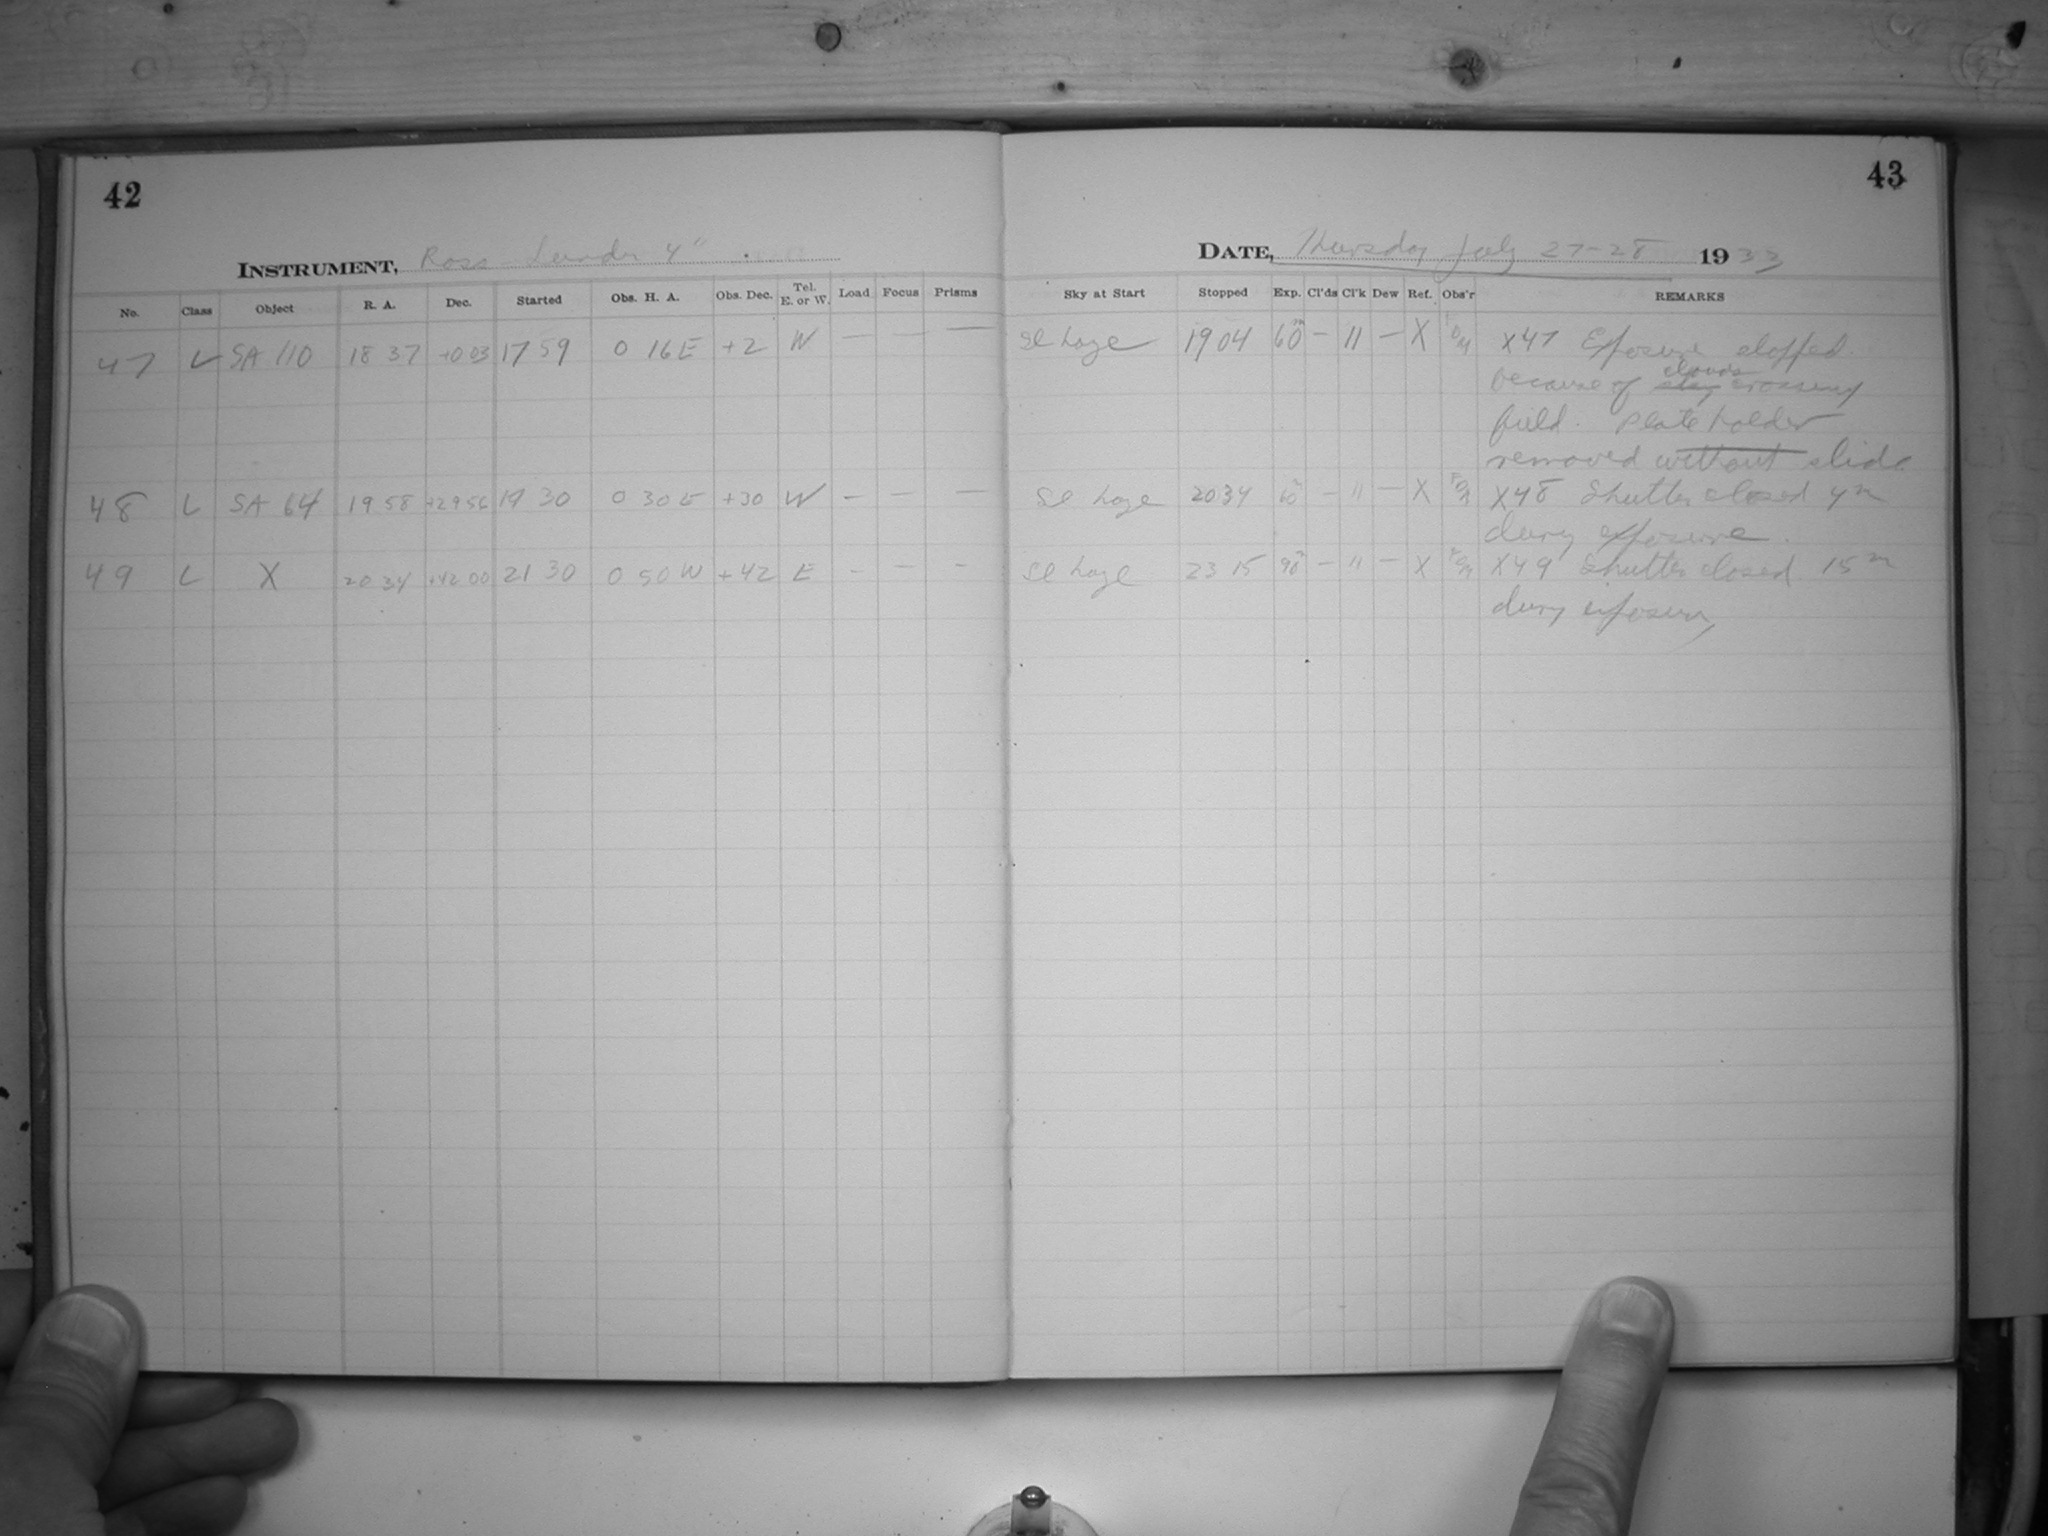 42
43
INSTRUMENT, Ross- 4"
DATE, Thursday July 27-28 1933
No. Class Object R. A. Dec. Started Obs. H. A. Obs. Dec. Tel. E. or W. Load Focus Prisms Sky at Start Stopped Exp. Cl'ds Cl'k Dew Ref. Obs'r REMARKS
47 L SA 110 18 37 +0 03 17 59 0 16 E +2 W — — — Sl haze 19 04 60m — 11 — X X47 Exposure stopped
because of clouds crossing
field. Plate holder
removed without slide
48 L SA 64 19 58 +29 56 19 30 0 30 E +30 W — — — Sl haze 20 34 60m — 11 — X X48 Shutter closed 4m
during exposure.
49 L X 20 34 +42 00 21 30 0 50 W +42 E — — — Sl haze 23 15 90m — 11 — X X49 Shutter closed 15m
during exposure